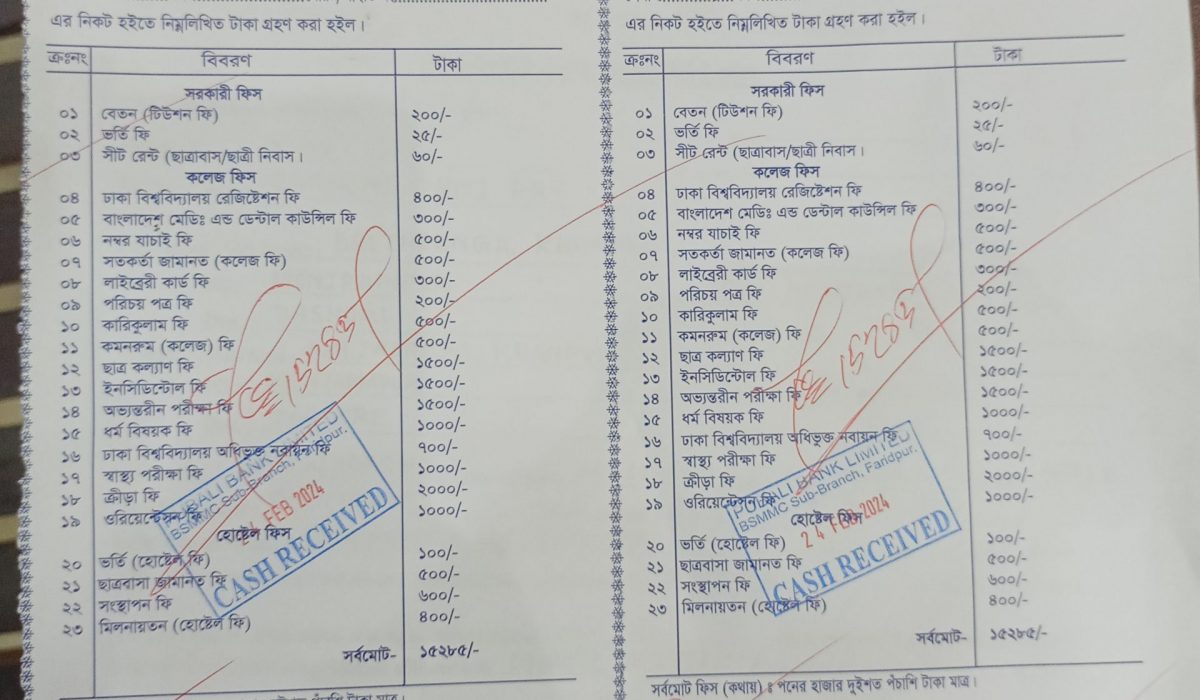 এর নিকট হইতে নিম্নলিখিত টাকা গ্রহণ করা হইল।
ক্রঃনং বিবরণ টাকা
সরকারী ফিস
০১ বেতন (টিউশন ফি) ২০০/-
০২ ভর্তি ফি ২৫/-
০৩ সীট রেন্ট (ছাত্রাবাস/ছাত্রী নিবাস। ৬০/-
কলেজ ফিস
০৪ ঢাকা বিশ্ববিদ্যালয় রেজিষ্টেশন ফি ৪০০/-
০৫ বাংলাদেশ মেডিঃ এন্ড ডেন্টাল কাউন্সিল ফি ৩০০/-
০৬ নম্বর যাচাই ফি ৫০০/-
০৭ সতকর্তা জামানত (কলেজ ফি) ৫০০/-
০৮ লাইব্রেরী কার্ড ফি ৩০০/-
০৯ পরিচয় পত্র ফি ২০০/-
১০ কারিকুলাম ফি ৫০০/-
১১ কমনরুম (কলেজ) ফি ৫০০/-
১২ ছাত্র কল্যাণ ফি ১৫০০/-
১৩ ইনসিডিন্টোল ফি ১৫০০/-
১৪ অভ্যন্তরীন পরীক্ষা ফি ১৫০০/-
১৫ ধর্ম বিষয়ক ফি ১০০০/-
১৬ ঢাকা বিশ্ববিদ্যালয় অধিভুক্ত নবায়ন ফি ৭০০/-
১৭ স্বাস্থ্য পরীক্ষা ফি ১০০০/-
১৮ ক্রীড়া ফি ২০০০/-
১৯ ওরিয়েন্টেসন ফি ১০০০/-
হোষ্টেল ফিস
২০ ভর্তি (হোষ্টেল ফি) ১০০/-
২১ ছাত্রবাসা জামানত ফি ৫০০/-
২২ সংস্থাপন ফি ৬০০/-
২৩ মিলনায়তন (হোষ্টেল ফি) ৪০০/-
সর্বমোট- ১৫২৮৫/-
PUBALI BANK LIMITED
BSMMC Sub-Branch, Faridpur.
24 FEB 2024
CASH RECEIVED
এর নিকট হইতে নিম্নলিখিত টাকা গ্রহণ করা হইল।
ক্রঃনং বিবরণ টাকা
সরকারী ফিস
০১ বেতন (টিউশন ফি) ২০০/-
০২ ভর্তি ফি ২৫/-
০৩ সীট রেন্ট (ছাত্রাবাস/ছাত্রী নিবাস। ৬০/-
কলেজ ফিস
০৪ ঢাকা বিশ্ববিদ্যালয় রেজিষ্টেশন ফি ৪০০/-
০৫ বাংলাদেশ মেডিঃ এন্ড ডেন্টাল কাউন্সিল ফি ৩০০/-
০৬ নম্বর যাচাই ফি ৫০০/-
০৭ সতকর্তা জামানত (কলেজ ফি) ৫০০/-
০৮ লাইব্রেরী কার্ড ফি ৩০০/-
০৯ পরিচয় পত্র ফি ২০০/-
১০ কারিকুলাম ফি ৫০০/-
১১ কমনরুম (কলেজ) ফি ৫০০/-
১২ ছাত্র কল্যাণ ফি ১৫০০/-
১৩ ইনসিডিন্টোল ফি ১৫০০/-
১৪ অভ্যন্তরীন পরীক্ষা ফি ১৫০০/-
১৫ ধর্ম বিষয়ক ফি ১০০০/-
১৬ ঢাকা বিশ্ববিদ্যালয় অধিভুক্ত নবায়ন ফি ৭০০/-
১৭ স্বাস্থ্য পরীক্ষা ফি ১০০০/-
১৮ ক্রীড়া ফি ২০০০/-
১৯ ওরিয়েন্টেসন ফি ১০০০/-
হোষ্টেল ফিস
২০ ভর্তি (হোষ্টেল ফি) ১০০/-
২১ ছাত্রবাসা জামানত ফি ৫০০/-
২২ সংস্থাপন ফি ৬০০/-
২৩ মিলনায়তন (হোষ্টেল ফি) ৪০০/-
সর্বমোট- ১৫২৮৫/-
সর্বমোট ফিস (কথায়) ঃ পনের হাজার দুইশত পঁচাশি টাকা মাত্র।
PUBALI BANK LIMITED
BSMMC Sub-Branch, Faridpur.
24 FEB 2024
CASH RECEIVED